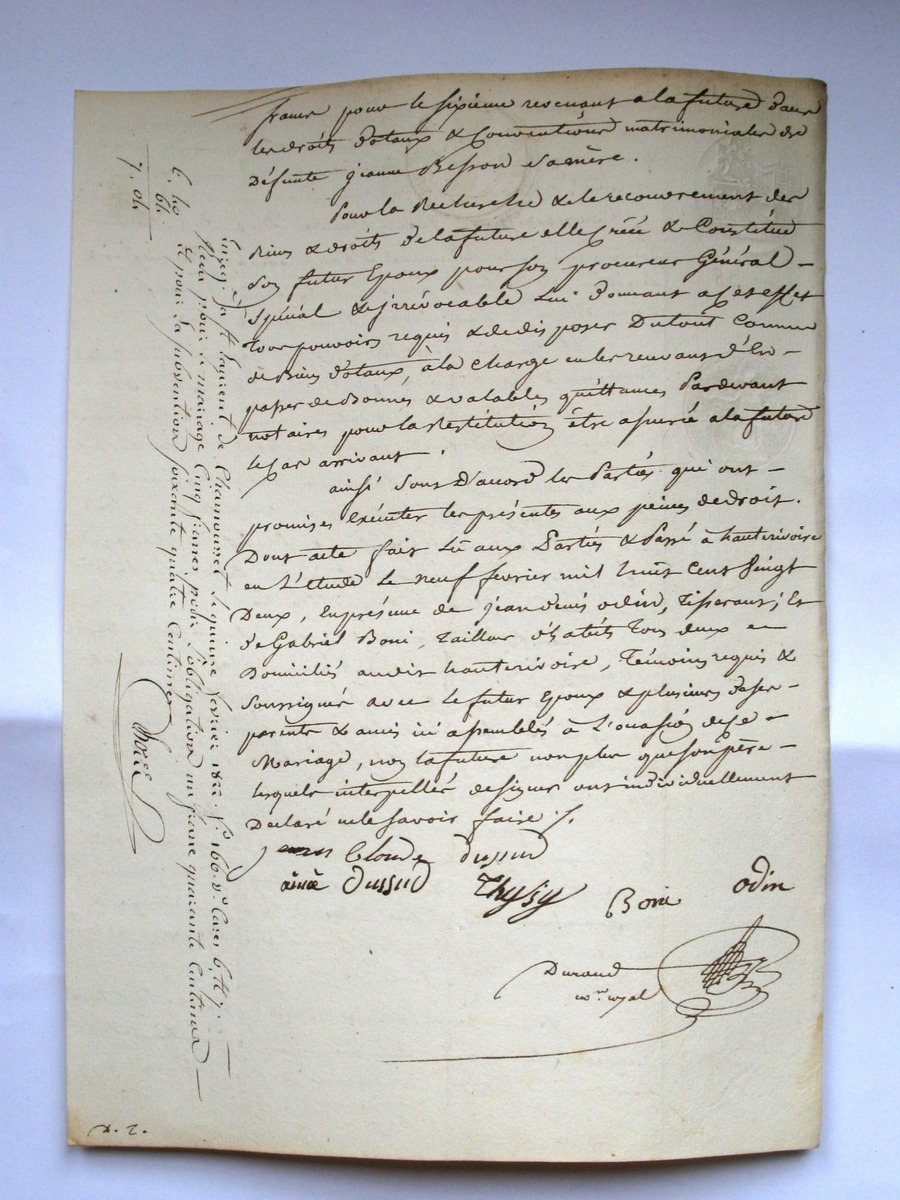 francs pour le sixieme revenant a la future dans
les droits dotaux & Conventions matrimoniales de
Défunte jeanne Besson sa mère.
Pour la Recherche & le recouvrement des
Biens & droits de la future elle Créé & Constitué
son futur Epoux pour son procureur Général
Spécial & jrrévocable Lui donnant a cet effet
tous pouvoirs requis & de disposer Dutout Comme
de Biens dotaux, à la charge en les recevant d'En
passer de Bonnes & valables quittances Pardevant
notaires pour la Restitution être assurée a la future
le cas arrivant.
ainsi Sont D'accord les Parties qui ont
promises Exécuter les présentes aux peines de droit.
Dont acte fait Lû aux Parties & Passé à hauterivoire
en L'étude Le neuf fevrier mil huit Cent Vingt
Deux, En présence de jean denis odin, Tisserant; Et
de Gabriel Boni, tailleur d'habits tous deux
Domiciliés audit hauterivoire, Témoins requis &
Soussignés avec le futur Epoux & plusieurs de ses
parents & amis ici assemblés à L'ouasion de ce
Mariage, non la future non plus que son père
lesquels interpellés de signer ont individuellement
Déclaré ne le savoir faire ./.
Claude Dussud
aimé Dussud Thysy Boni odin
Durand
n.re royal
Enreg. à St Laurent de Chamousset le quinze fevrier 1822. f.o 166. v.o Cases 6, et 7.
Reçu pour le mariage Cinq francs, pour l'obligation un franc quarante Centimes
et pour la subvention soixante quatre Centimes
6. 40
64
7. 04
D. 2.